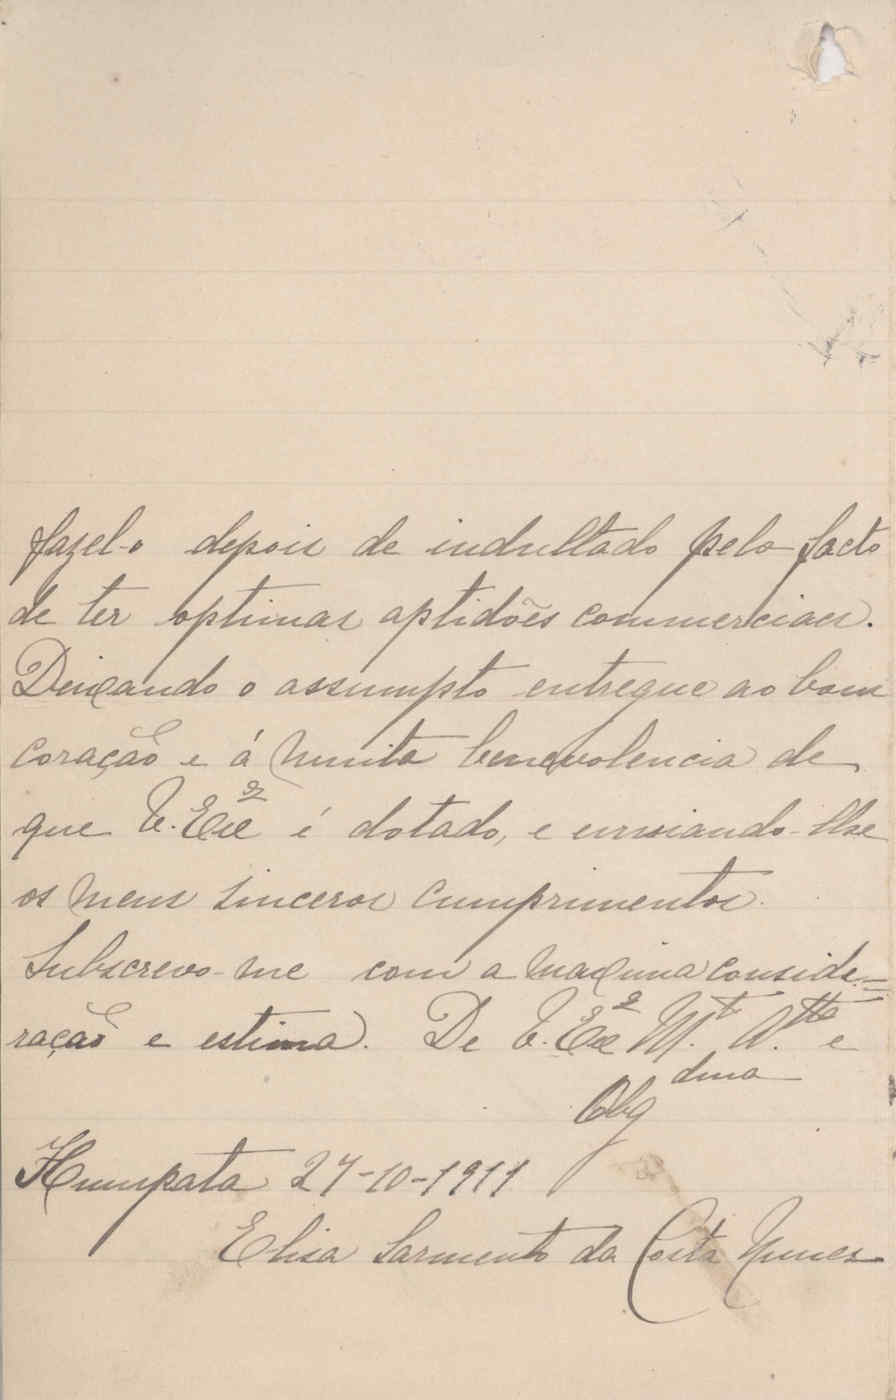 fazel-o depois de indultado pelo facto
de ter optimas aptidões commerciaes.
Deixando o assumpto entregue ao bom
coração e á muita benevolencia de
que V. Exª é dotado, e enviando-lhe
os meus sinceros cumprimentos.
Subscrevo-me com a maxima conside=
ração e estima. De V. Exª M.t A.tta e
Obgdma
Humpata 27-10-1911
Elisa Sarmento da Costa Nunes